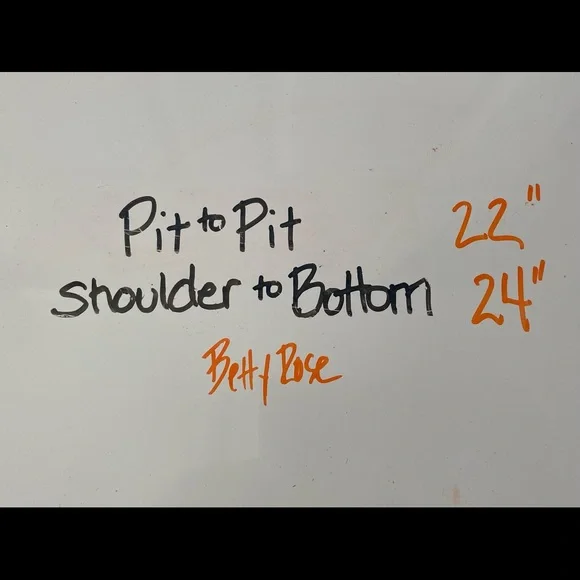 Pit to Pit 22"
Shoulder to Bottom 24"
Betty Rose